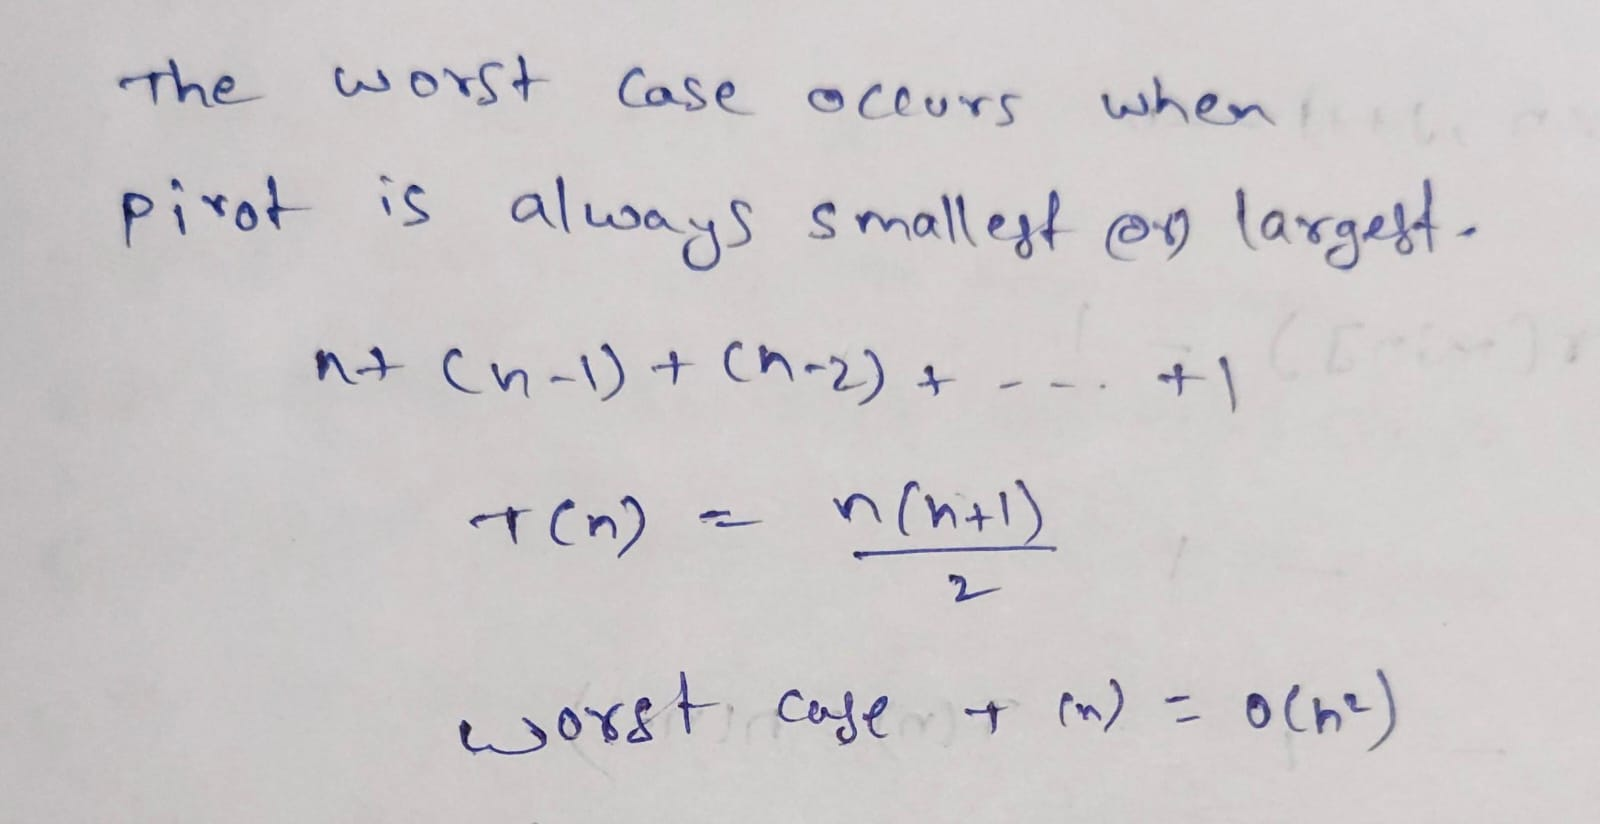 The worst case occurs when
pivot is always smallest (or) largest.
n+ (n-1) + (n-2) + - - - . +1
T(n) = n(n+1)
2
worst case T(n) = O(n²)